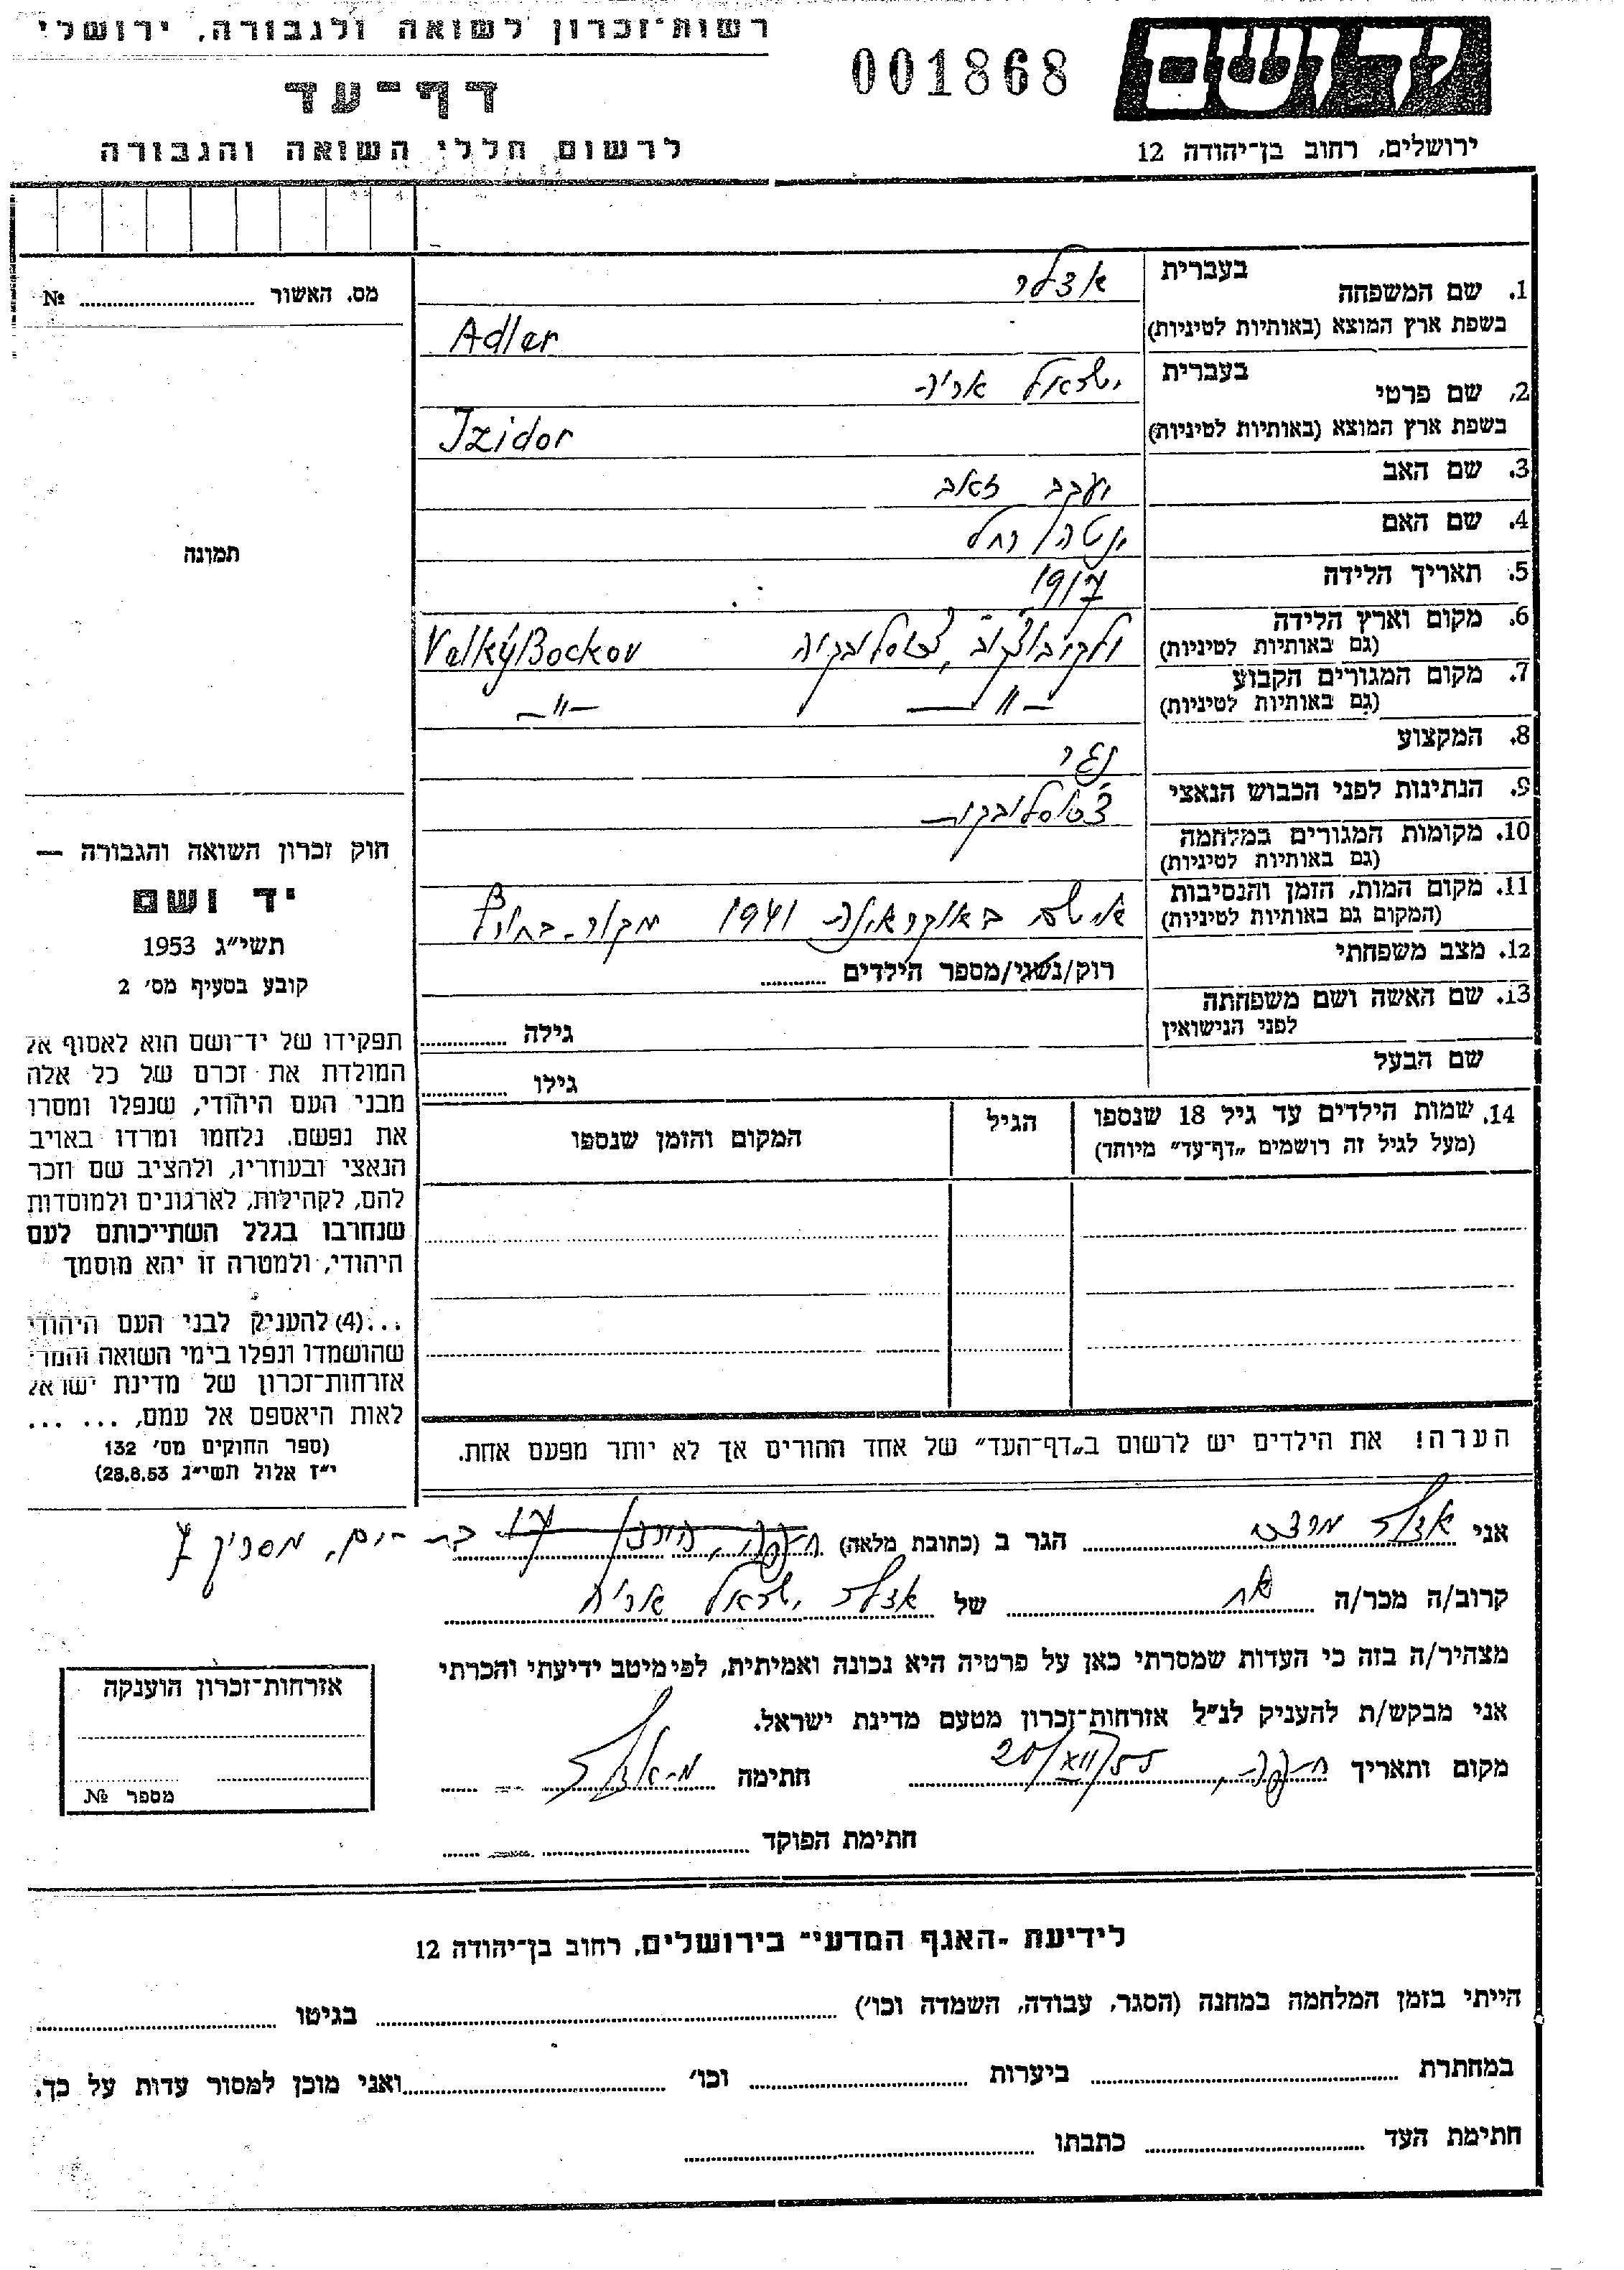 רשות־זכרון לשואה ולגבורה, ירושלי
דף־עד
לרשום חללי השואה והגבורה
001868
יד ושם
ירושלים, רחוב בן־יהודה 12
מס. האשור № ..........
תמונה
1. שם המשפחה בעברית אדלר
בשפת ארץ המוצא (באותיות לטיניות) Adler
2. שם פרטי בעברית ישראל אריה
בשפת ארץ המוצא (באותיות לטיניות) Izidor
3. שם האב יעקב זאב
4. שם האם רחל
5. תאריך הלידה 1917
6. מקום וארץ הלידה
(גם באותיות לטיניות) צ'כוסלובקיה Velký Bockov
7. מקום המגורים הקבוע
(גם באותיות לטיניות) —״— —״—
8. המקצוע נגר
9. הנתינות לפני הכבוש הנאצי צ'כוסלובקית
10. מקומות המגורים במלחמה
(גם באותיות לטיניות)
11. מקום המות, הזמן והנסיבות
(המקום גם באותיות לטיניות) אי שם באוקראינה 1941 מקור בחורף
12. מצב משפחתי רוק/נשוי/מספר הילדים ..........
13. שם האשה ושם משפחתה
לפני הנישואין גילה ..........
שם הבעל גילו ..........
14. שמות הילדים עד גיל 18 שנספו
(מעל לגיל זה רושמים „דף־עד” מיוחד)
הגיל
המקום והזמן שנספו
חוק זכרון השואה והגבורה —
יד ושם
תשי״ג 1953
קובע בסעיף מס׳ 2
תפקידו של יד־ושם הוא לאסוף אל
המולדת את זכרם של כל אלה
מבני העם היהודי, שנפלו ומסרו
את נפשם, נלחמו ומרדו באויב
הנאצי ובעוזריו, ולהציב שם וזכר
להם, לקהילות, לארגונים ולמוסדות
שנחרבו בגלל השתייכותם לעם
היהודי, ולמטרה זו יהא מוסמך
...(4) להעניק לבני העם היהודי
שהושמדו ונפלו בימי השואה והמרי
אזרחות־זכרון של מדינת ישראל
לאות היאספם אל עמם, ... ...
(ספר החוקים מס׳ 132
י״ז אלול תשי״ג 28.8.53)
הערה! את הילדים יש לרשום ב„דף־העד” של אחד ההורים אך לא יותר מפעם אחת.
אני אדלר הגר ב (כתובת מלאה) חיפה, בת־ים, 7
קרוב/ה מכר/ה אח של אדלר ישראל אריה
מצהיר/ה בזה כי העדות שמסרתי כאן על פרטיה היא נכונה ואמיתית, לפי מיטב ידיעתי והכרתי
אני מבקש/ת להעניק לנ״ל אזרחות־זכרון מטעם מדינת ישראל.
מקום ותאריך חיפה, 20/VII/55 חתימה מ. אדלר
חתימת הפוקד ..........
אזרחות־זכרון הוענקה
מספר №
לידיעת ״האגף המדעי״ בירושלים, רחוב בן־יהודה 12
הייתי בזמן המלחמה במחנה (הסגר, עבודה, השמדה וכו׳) .......... בגיטו ..........
במחתרת .......... ביערות .......... וכו׳ .......... ואני מוכן למסור עדות על כך.
חתימת העד .......... כתבתו ..........